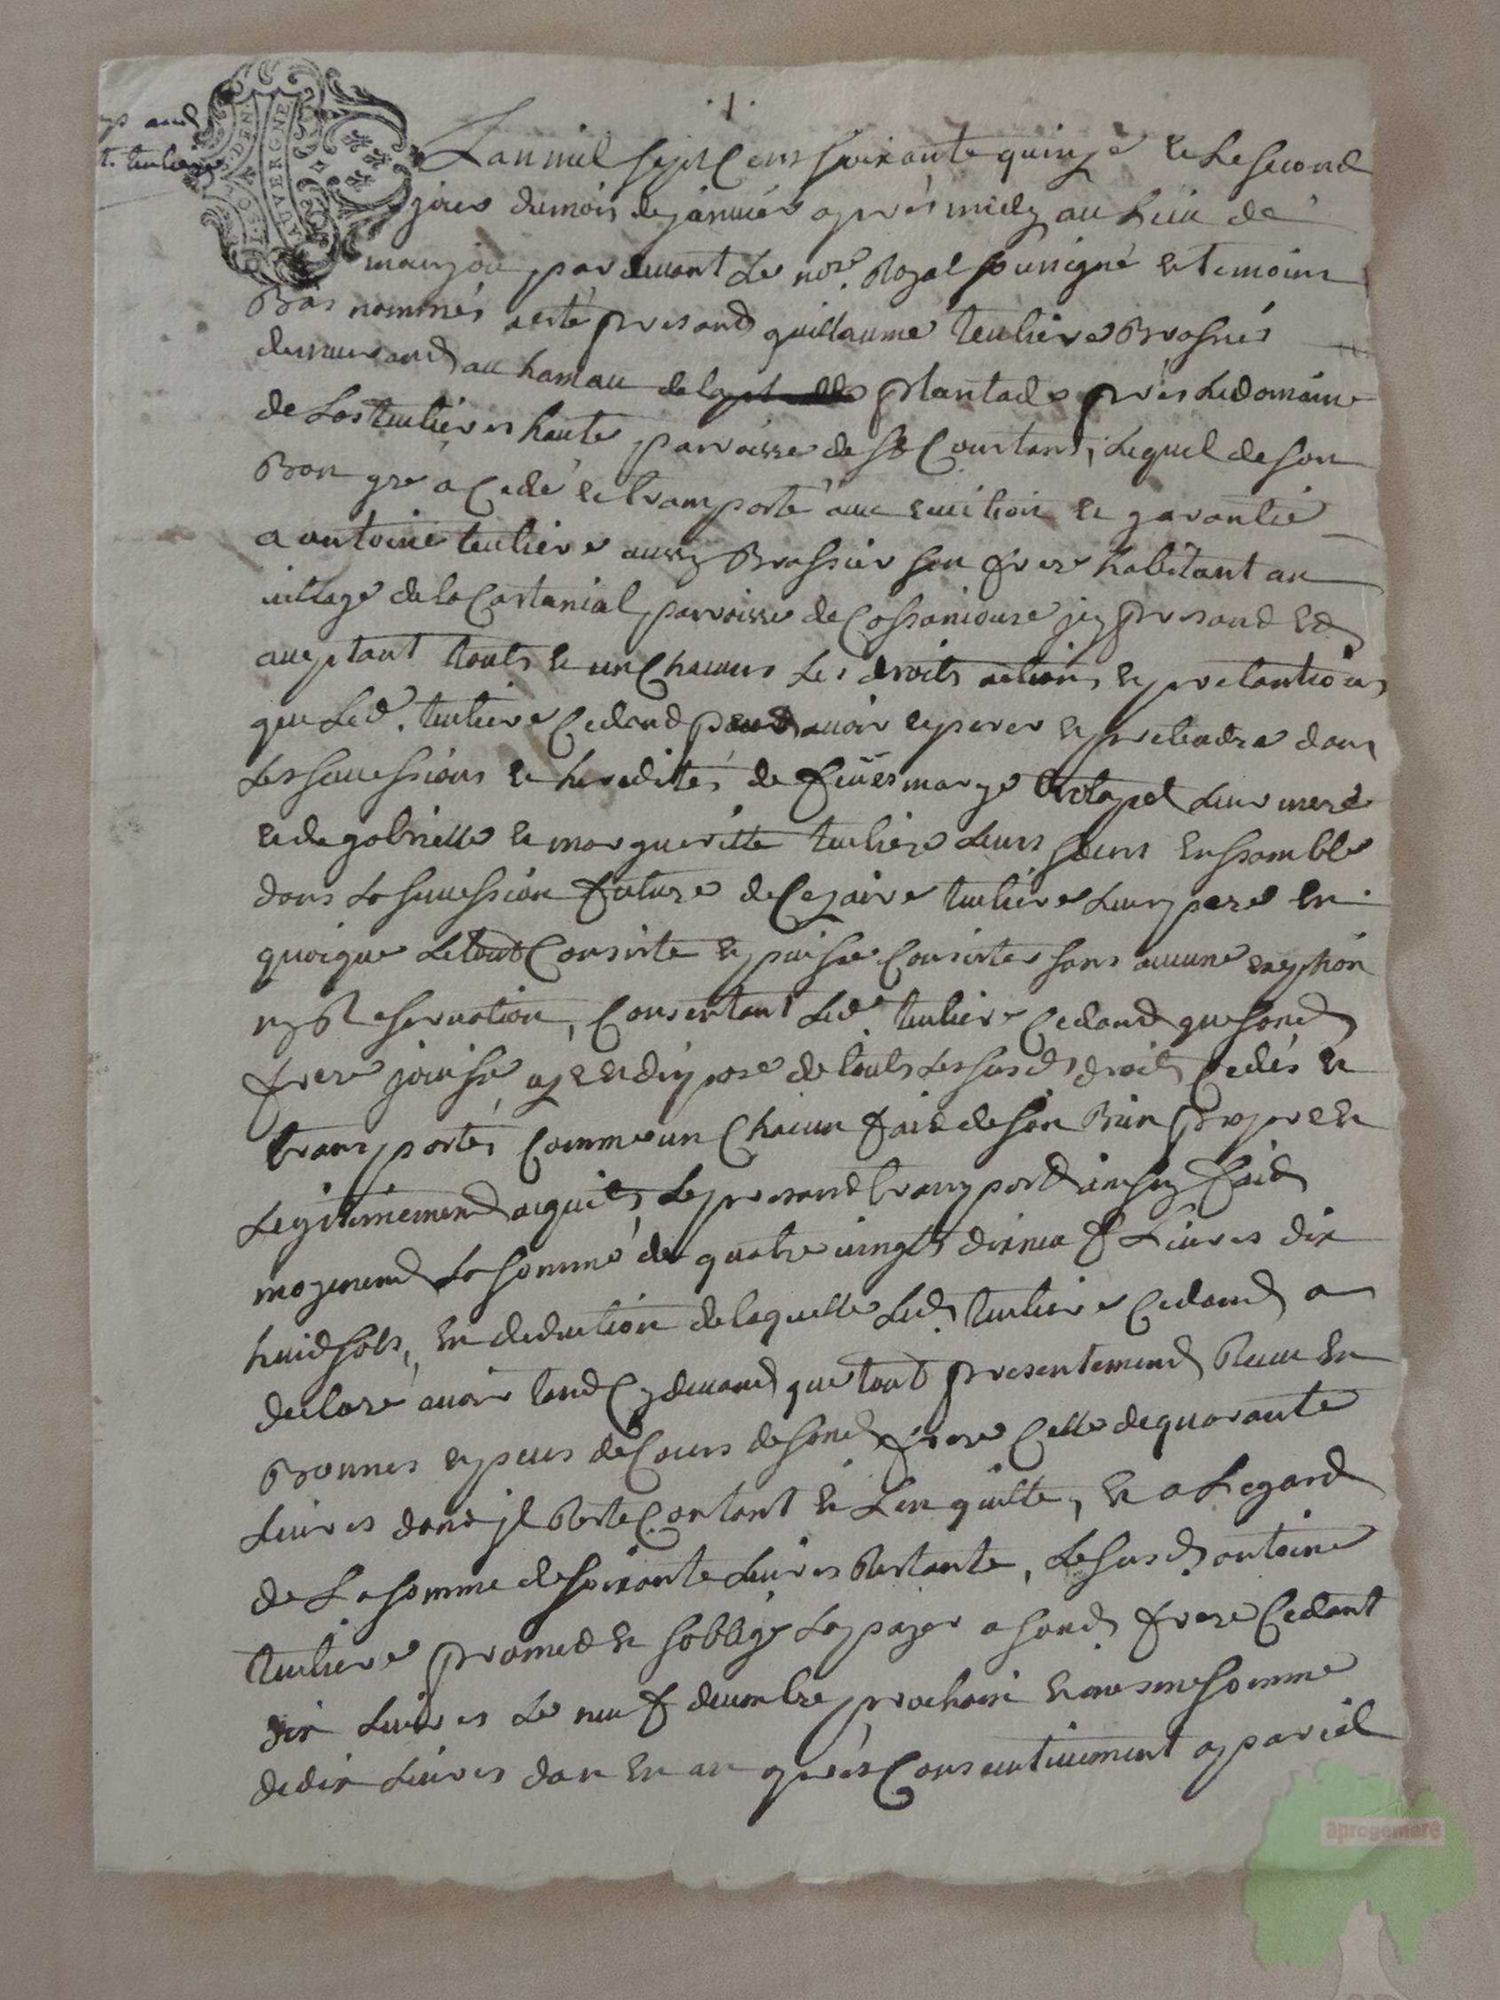 .1.
L'an mil sept Cens soixante quinze & Le second
jour du mois de janvier apres midy au Lieu de
maurjou par devant Le nore. Royal soussigné & temoins
Bas nommés a esté presand guillaume teuliere Brasier
demeurand au hamau de la plantade pres Le domaine
de Las teulieres haute parroisse de St Constans, Lequel de son
Bon gré a Cedé & transporté avec eviction & garantie
a antoine teuliere aussy Brassier son frere habitant au
village de la Castanial parroisse de Cassaniouse jcy presand &
aceptant touts & un Chacuns Les droits actions & pretantions
que Led. teuliere Cedand peut avoir esperer & pretendre dans
Les successions & heredités de feües marye Leur mere
& de gabrielle & margueritte teuliere Leurs sœurs Enssamble
dans La sucession future de Cezaire teuliere Leur pere En
quoique Le tout Consiste & puisse Consister sans aucune exeption
ny Reservation, Consentant Led. teuliere Cedand que sond.
frere jouisse & En dispose de touts Les susd. droits Cedés &
transportés Comme un Chacun fait de son Bien propre &
Legitimemend acquits, Le presand transport ainsy fait
moyenend La somme de quatre vingts dix neuf Livres dix
huid sols, En deduction de laquelle Led. teuliere Cedand a
declare avoir tand Cy devand que tout presentemend Receu En
Bonnes especes de Cours de sond. frere Celle de quarante
Livres dond jl Reste Contant & L'en quitte, & a L'egard
de La somme de soixante Livres Restante, Le susd. antoine
teuliere promed & s'obblige La payer a sond. frere Cedant
dix Livres Le neuf decembre prochain & mesme somme
de dix Livres dans un an apres Consecutivement a pareil
GEN. AUVERGNE
aprogemere